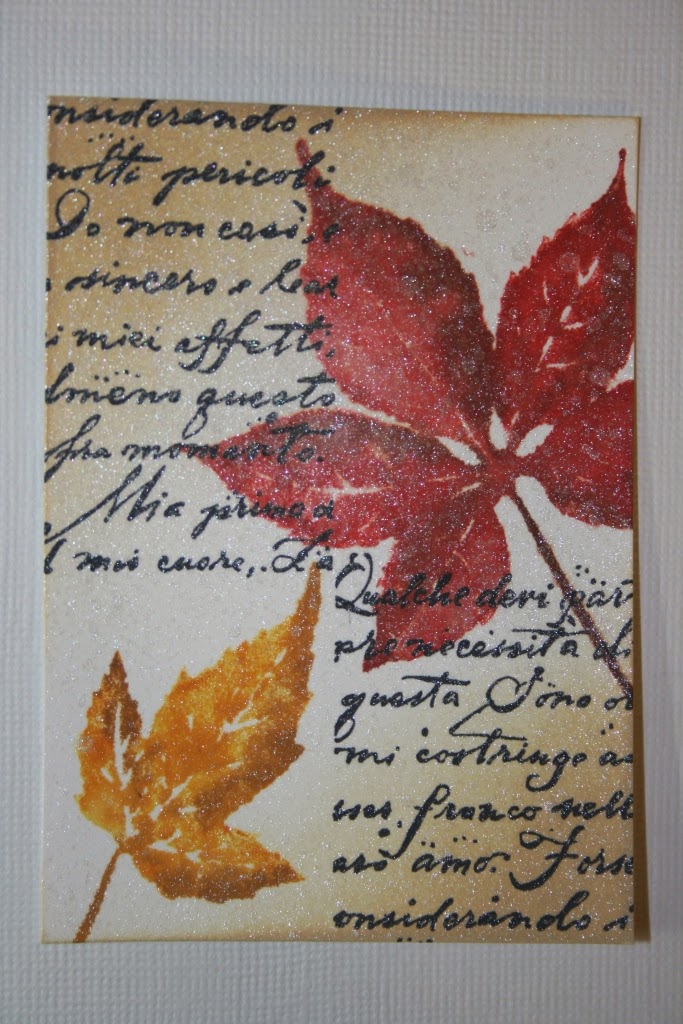 onsiderando i
molti pericoli
Do non casì, e
sincero e lea
i miei affetti,
lmeno questo
fra momento.
Mia prima d
l mio cuore, La
Qualche devi par
pre necessità di
questa Sono or
mi costringe a
franco nell
arò amo. Forse
onsiderando i